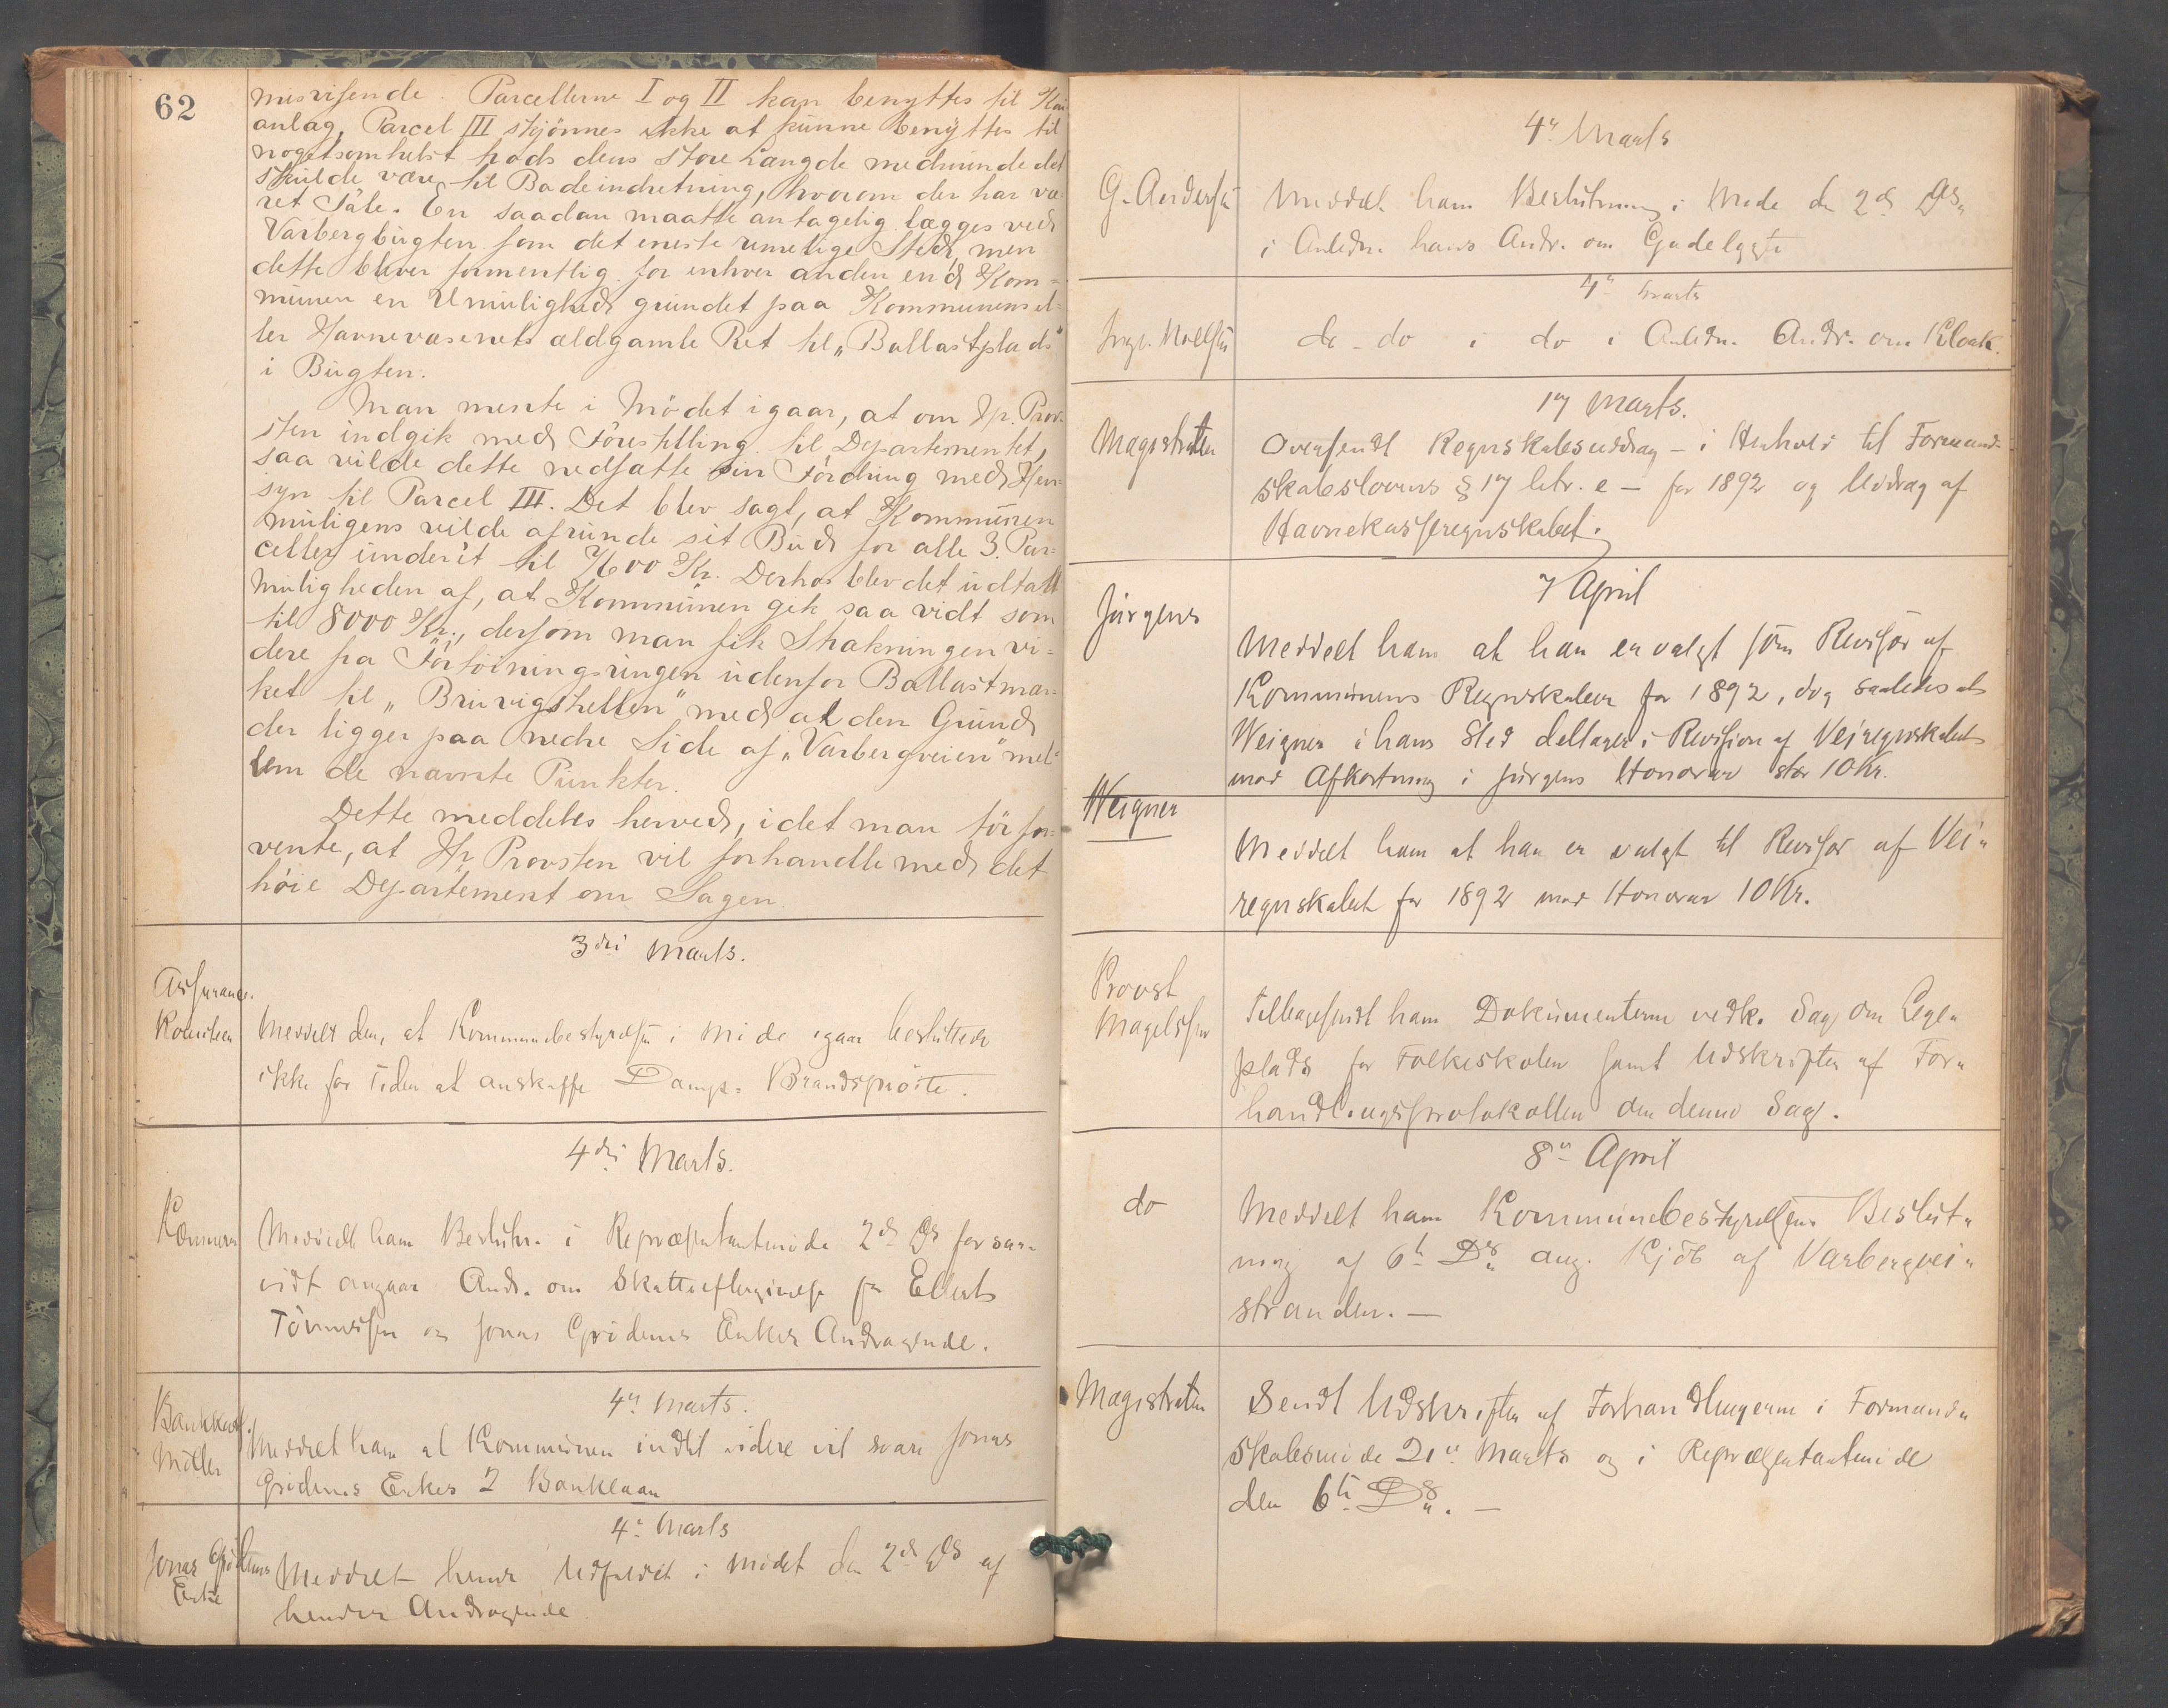 62
misvisende. Parcellerne I og II kan benyttes til Kai
anlæg, Parcel III skjönnes ikke at kunne benyttes til
nogetsomhelst hads dens store Længde medminde det
skulde være til Badeindretning, hvorom der har væ
ret Tale. En saadan maatte antagelig lægges ved
Varbergbugten som det eneste rimelige Sted, men
dette bliver formentlig for enhver anden end Kom=
munen en Umulighed grundet paa Kommunens el=
ler Havnevæsenets ældgamle Ret til „Ballastplads"
i Bugten.
Man mente i Mödet igaar, at om Hr. Prov-
sten indgik med Forestilling til Departementet,
saa vilde dette nedsætte sin Fordring med Hen-
syn til Parcel III. Det blev sagt, at Kommunen
muligens vilde afrunde sit Bud for alle 3 Par=
celler underét til 7600 Kr. Derhos blev det udtalt
Muligheden af, at Kommunen gik saa vidt som
til 8000 Kr., dersom man fik Strækningen vi=
dere fra Fortöiningsringen udenfor Ballastmær=
ket til „Bruvigshellen" med al den Grund
der ligger paa nedre Side af „Varbergveien" mel=
lem de nævnte Punkter.
Dette meddeles herved, idet man tör for=
vente, at Hr. Provsten vil forhandle med det
höie Departement om Sagen.
3die Marts.
Assurance.
Komiteen Meddelt den, at Kommunebestyrelsen i Möde igaar besluttede
ikke for Tiden at anskaffe Damp= Brandspröite.
4die Marts.
Kæmneren Meddelt ham Beslutn. i Repræsentantmöde 2den Ds for saa=
vidt angaar Andr. om Skatteeftergivelse fra Ellerts
Tönnessen og Jonas Grödems Enkes Andragende.
4de Marts.
Bankkass.
Möller
Meddelt ham at Kommunen indtil videre vil svare Jonas
Grödems Enkes 2 Banklaan
4de Marts
Jonas Grödems
Enke
Meddelt hende Udfaldet i Mödet den 2den Ds af
hendes Andragende
4de Marts
G. Andersen Meddelt ham Beslutning i Möde den 2den Ds.
i Anledn. hans Andr. om Gadelygte
4de Marts
do - do i do i Anledn. Andr. om Kloak.
17 Marts.
Magistraten Oversendt Regnskabsuddrag - i Henhold til Formand=
skabslovens § 17 litr. e - for 1892 og Uddrag af
Havnekasseregnskabet.
7 April
Jürgens
Meddelt ham at han er valgt som Revisor af
Kommunens Regnskaber for 1892, dog saaledes at
Weigner i hans Sted deltager i Revision af Veiregnskabet
mod Afkortning i Jürgens Honorar stor 10 Kr.
Weigner
Meddelt ham at han er valgt til Revisor af Vei=
regnskabet for 1892 mod Honorar 10 Kr.
Provst
Magelssen
Tilbagesendt ham Dokumenterne vedk. Sag om Lege=
plads for Folkeskolen samt Udskrifter af For=
handlingsprotokollen om denne Sag.
8de April
do Meddelt ham Kommunebestyrelsens Beslut=
ning af 6te Ds. ang. Kjöb af Varbergvei=
stranden. —
Magistraten Sendt Udskrifter af Forhandlingerne i Formand=
skabsmöde 21de Marts og i Repræsentantmöde
den 6te Ds. —